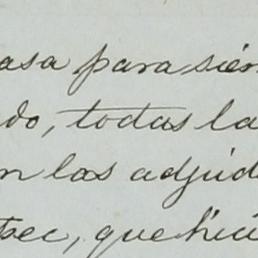 asa para siem
do, todas la
n las adjud
tec, que hici